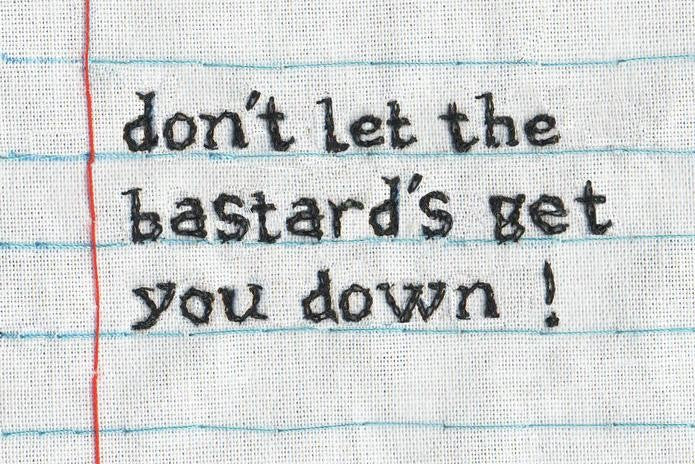 don't let the
bastard's get
you down !